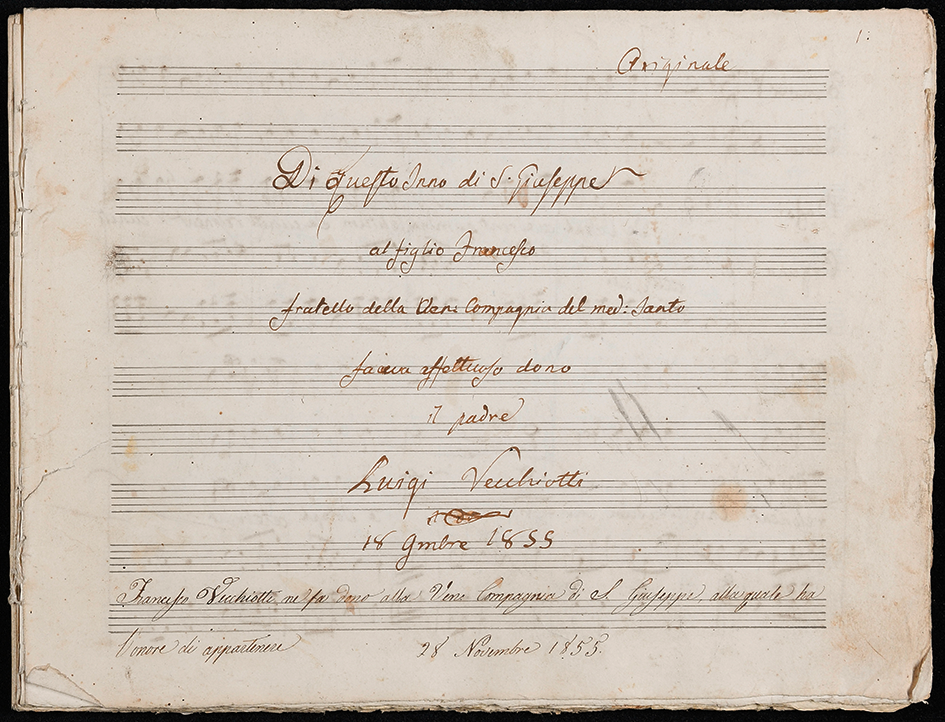 1:
Originale
Di questo Inno di S. Giuseppe
al figlio Francesco
fratello della Ven: Compagnia del med: Santo
faceva affettuoso dono
il padre
Luigi Vecchiotti
18 9mbre 1855
Francesco Vecchiotti ne fa dono alla Vene Compagnia di S. Giuseppe, alla quale ha
l'onore di appartenere
28 Novembre 1855.